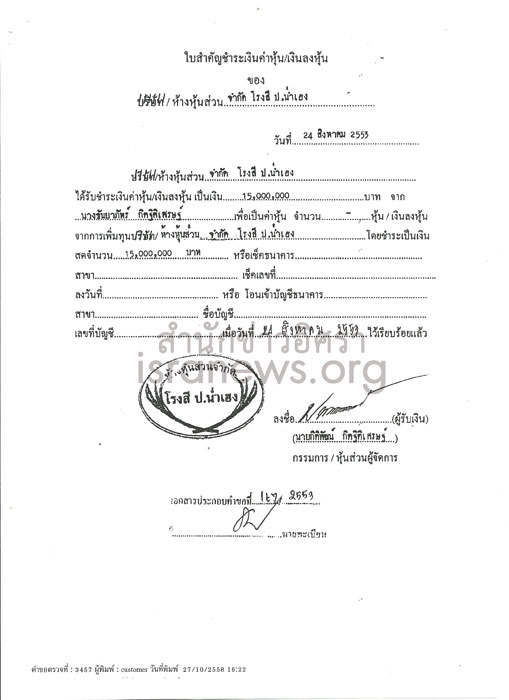 ใบสำคัญชำระเงินค่าหุ้น/เงินลงหุ้น
ของ
บริษัท/ห้างหุ้นส่วน จำกัด โรงสี ป.น่ำเฮง
วันที่ 24 สิงหาคม 2553
บริษัท/ห้างหุ้นส่วน จำกัด โรงสี ป.น่ำเฮง
ได้รับชำระเงินค่าหุ้น/เงินลงหุ้น เป็นเงิน 15,000,000 บาท จาก
นางธันยาภัทร์ กิตฐิติเศรษฐ์ เพื่อเป็นค่าหุ้น จำนวน - หุ้น / เงินลงหุ้น
จากการเพิ่มทุนบริษัท/ห้างหุ้นส่วน จำกัด โรงสี ป.น่ำเฮง โดยชำระเป็นเงิน
สดจำนวน 15,000,000 บาท หรือเช็คธนาคาร
สาขา เช็คเลขที่
ลงวันที่ หรือ โอนเข้าบัญชีธนาคาร
สาขา ชื่อบัญชี
เลขที่บัญชี เมื่อวันที่ 24 สิงหาคม 2553 ไว้เรียบร้อยแล้ว
สำนักข่าวอิศรา
isranews.org
ห้างหุ้นส่วนจำกัด
โรงสี ป.น่ำเฮง
ลงชื่อ (ผู้รับเงิน)
กรรมการ / หุ้นส่วนผู้จัดการ
เอกสารประกอบคำขอที่ 2553
นายทะเบียน
คำขอตรวจที่ : 3457 ผู้พิมพ์ : customer วันที่พิมพ์ 27/10/2558 16:22